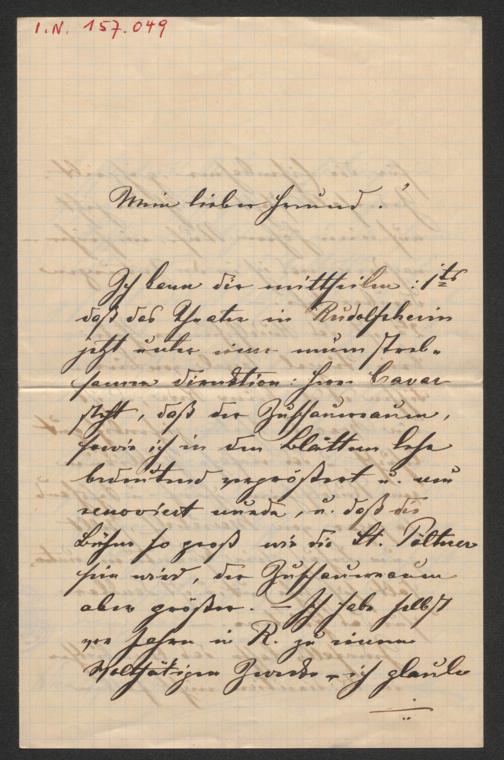 I.N. 157.049
Mein lieber Freund!
Ich kann dir mittheilen: 1tes
daß das Theater in Rudolfsheim
jetzt unter einer neuen streb-
samen Direktion: Herr Cavar
steht, daß der Zuschauerraum,
sowie ich in den Blättern lese
bedeutend vergrößert u. neu
renoviert wurde, u. daß die
Bühne so groß wie die St. Pöltner
sein wird, der Zuschauerraum
aber größer. – Ich habe selbst
vor Jahren in R. zu einem
Wolthätigen Zwecke – ich glaube